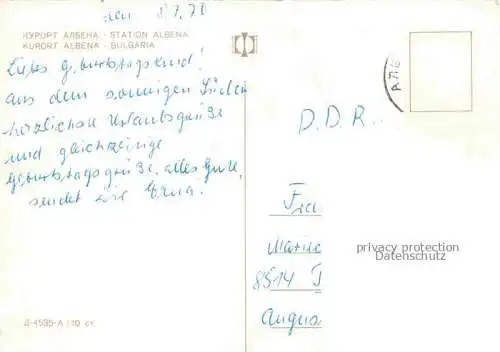 den 8.7.78
КУРОРТ АЛБЕНА - STATION ALBENA
KURORT ALBENA - BULGARIA
Liebes Geburtstagskind!
Aus dem sonnigen Süden
herzlichste Urlaubsgrüße
und gleichzeitige
Geburtstagsgrüße, alles Gute,
sendet die Erna.
D.D.R.
8514
privacy protection
Datenschutz
Д-4595-А / 10 ст.